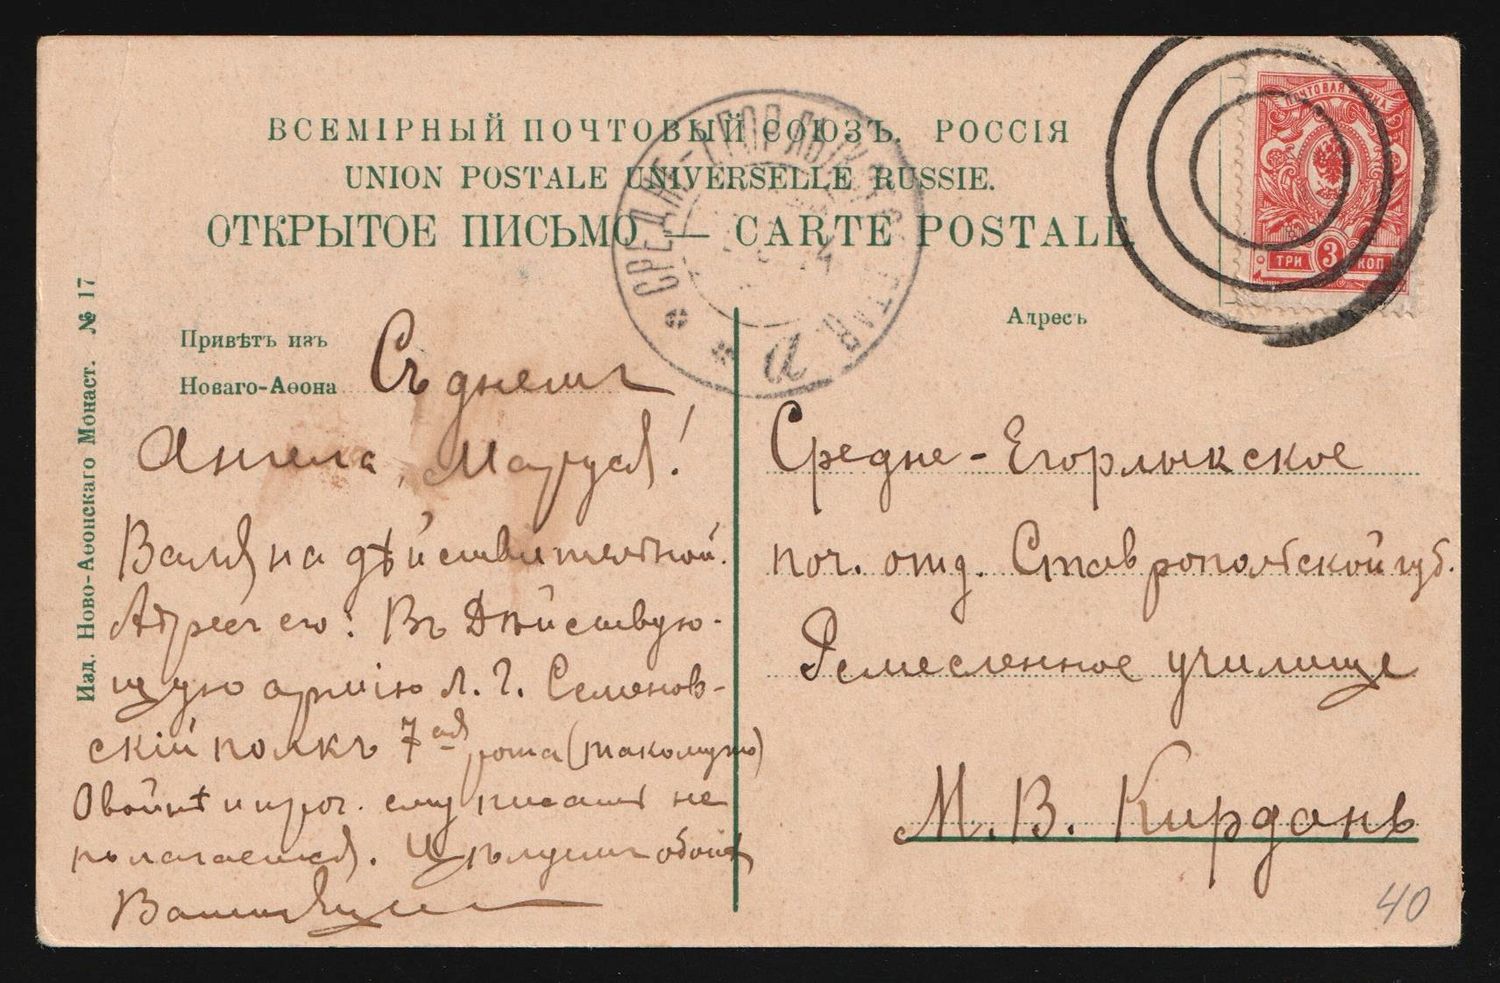 ВСЕМІРНЫЙ ПОЧТОВЫЙ СОЮЗЪ. РОССІЯ
UNION POSTALE UNIVERSELLE RUSSIE.
ОТКРЫТОЕ ПИСЬМО — CARTE POSTALE
ПОЧТОВАЯ МАРКА
ТРИ 3 КОП
СРЕДНЕ-ЕГОРЛЫК
Изд. Ново-Аѳонскаго Монаст. № 17
Привѣтъ изъ
Новаго-Аѳона Съ днемъ
Ангела, Маруся!
Валя на дѣйствительной.
Адресъ его: Въ Дѣйствую-
щую армію Л. Г. Семенов-
скій полкъ 7ая рота (такому то)
О войнѣ и проч. ему писать не
полагается. Цѣлуемъ обоихъ
Адресъ
Средне-Егорлыкское
поч. отд. Ставропольской губ.
Ремесленное училище
М. В. Кирданъ
40